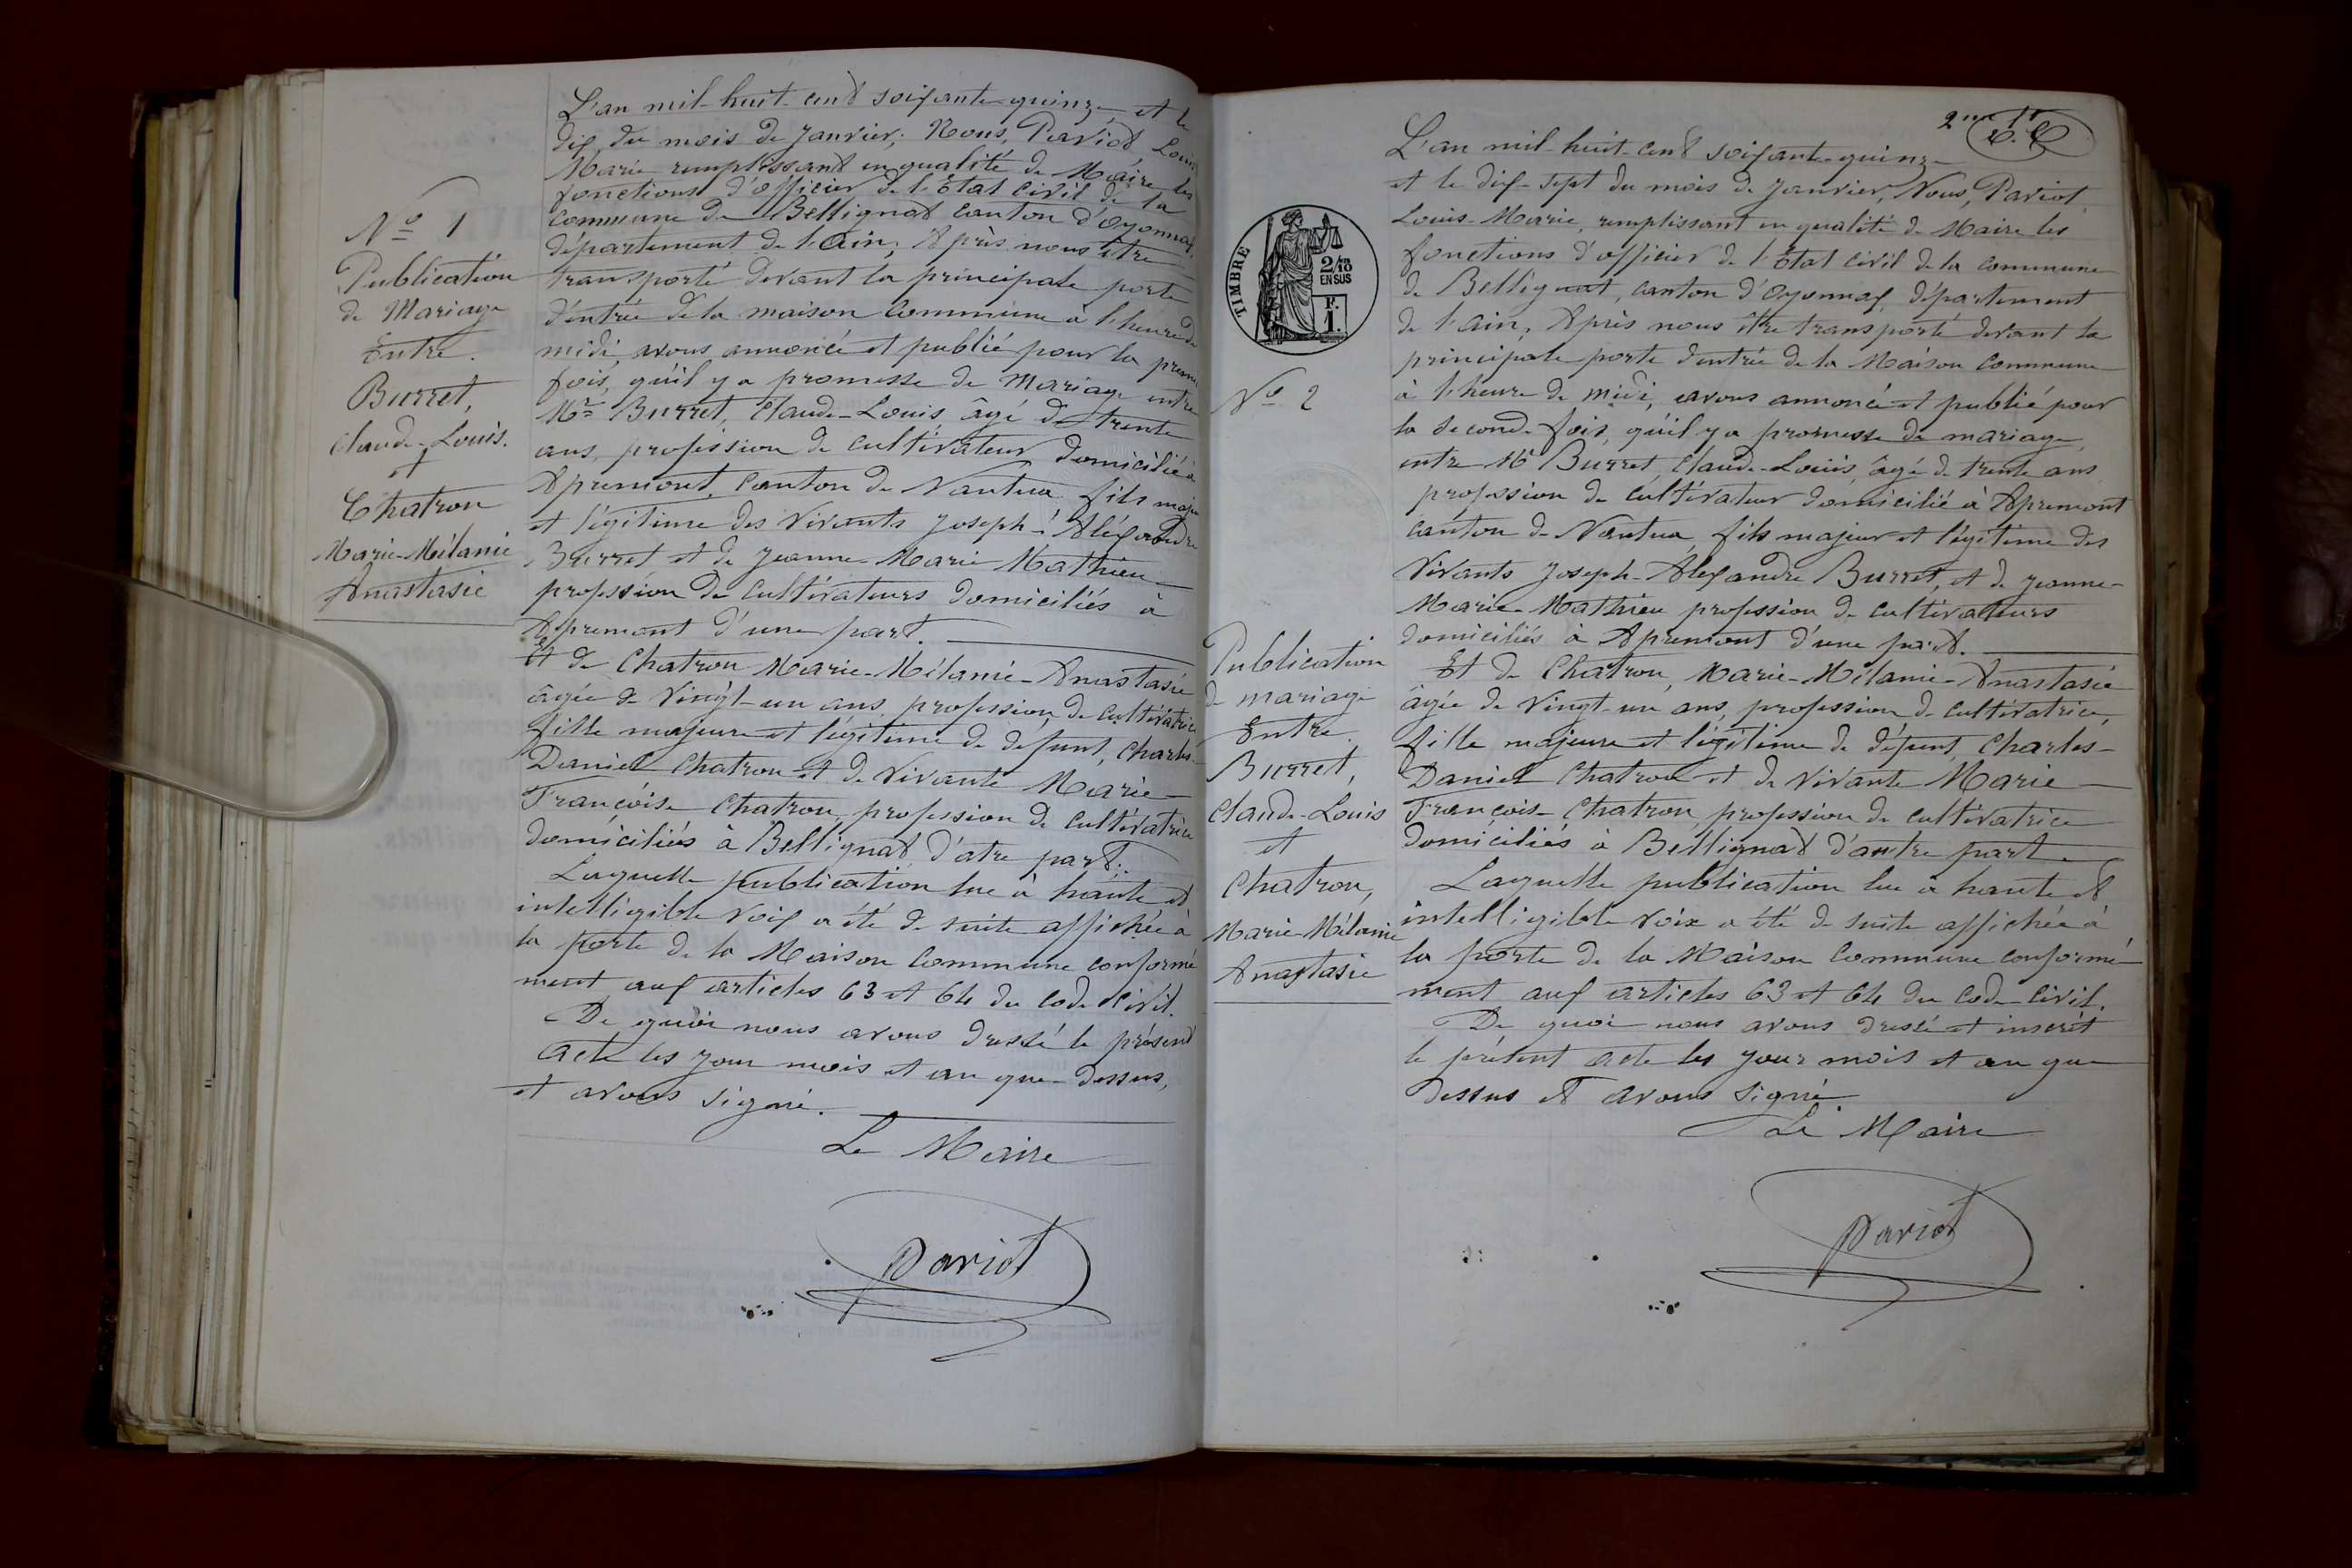 N° 1
Publication
de Mariage
Entre.
Burret,
Claude-Louis.
et
Chatron
Marie-Mélanie
Anastasie
L'an mil-huit-cent soixante-quinze, et le
dix du mois de Janvier; Nous, Pariot Louis
Marie remplissant en qualité de Maire les
fonctions d'officier de l'État Civil de la
commune de Bellignat canton d'Oyonnax,
département de l'Ain, Après nous être
transporté devant la principale porte
d'entrée de la maison Commune à l'heure de
midi, avons annoncé et publié pour la premi
fois, qu'il y a promesse de Mariage entre
Mr Burret, Claude-Louis, âgé de trente
ans, profession de cultivateur domicilié à
Apremont, Canton de Nantua fils majeu
et légitime des vivants Joseph-Aléxandre
Burret et de Jeanne-Marie Mathieu
profession de Cultivateurs domiciliés à
Apremont d'une part.
Et de Chatron Marie-Mélanie-Anastasie
âgée de Vingt-un ans, profession de Cultivatrice
fille majeure et légitime de defunt, Charles-
Daniel Chatron et de vivante Marie-
Françoise Chatron, profession de Cultivatrice
domiciliés à Bellignat, d'atre part.
Laquelle publication lue à haute et
intelligible voix a été de suite affichée à
la porte de la Maison Commune conformé
ment aux articles 63 et 64 du Code Civil.
De quoi nous avons dressé le présent
acte les jour mois et an que dessus,
et avons signé.
Le Maire
Pariot
2me
TIMBRE
2/10
EN SUS
F.
1.
N° 2
Publication
de mariage
Entre.
Burret,
Claude-Louis
et
Chatron,
Marie-Mélanie
Anastasie
L'an mil-huit-cent soixante-quinze
et le dix-sept du mois de Janvier, Nous, Pariot
Louis-Marie, remplissant en qualité de Maire les
fonctions d'officier de l'État Civil de la Commune
de Bellignat, canton d'Oyonnax, département
de l'Ain, Après nous être transporté devant la
principale porte d'entrée de la Maison Commune
à l'heure de midi, avons annoncé et publié pour
la seconde fois, qu'il y a promesse de mariage
entre Mr Burret, Claude-Louis, âgé de trente ans
profession de Cultivateur domicilié à Apremont
canton de Nantua, fils majeur et légitime des
Vivants Joseph-Alexandre Burret, et de Jeanne-
Marie-Mathieu profession de cultivateurs
domiciliés à Apremont d'une part.
Et de Chatron, Marie-Mélanie-Anastasie
âgée de Vingt-un ans, profession de Cultivatrice,
fille majeure et légitime de défunt, Charles-
Daniel Chatron et de vivante Marie-
Françoise Chatron, profession de cultivatrice
domiciliés à Bellignat d'autre part
Laquelle publication lue à haute et
intelligible voix a été de suite affichée à
la porte de la Maison Commune conformé
ment aux articles 63 et 64 du Code-Civil.
De quoi nous avons dressé et inscrit
le présent acte les jour mois et an que
dessus et avons signé
Le Maire
Pariot